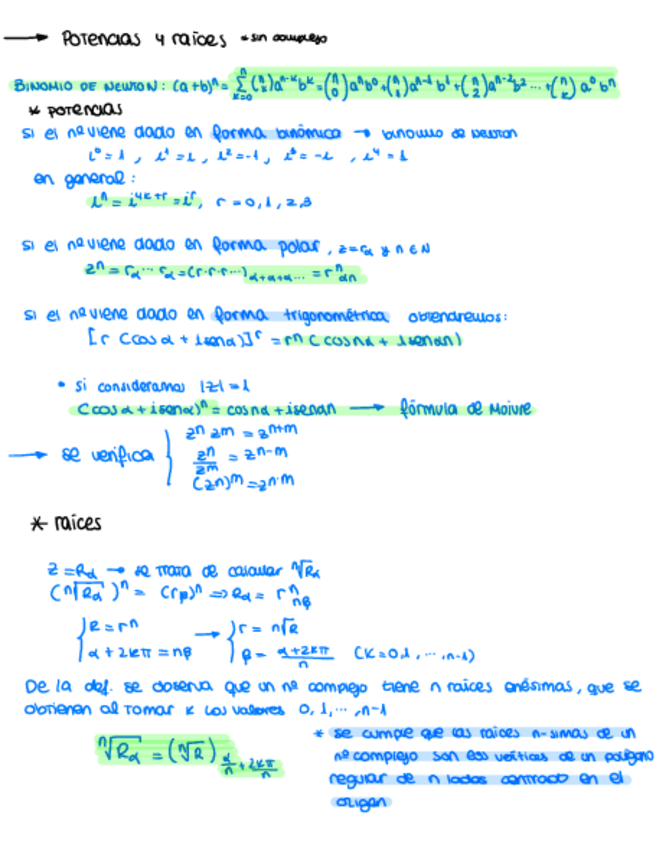 → Potencias y raíces * nº complejo
BINOMIO DE NEWTON: (a+b)ⁿ = Σ_{k=0}^{n} (n k) aⁿ⁻ᵏ bᵏ = (n 0) aⁿ b⁰ + (n 1) aⁿ⁻¹ b¹ + (n 2) aⁿ⁻² b² ... + (n k) a⁰ bⁿ
* POTENCIAS
si el nº viene dado en forma binómica → binomio de Newton
i⁰ = 1 , i¹ = i , i² = -1 , i³ = -i , i⁴ = 1
en general:
iⁿ = i^{4k+r} = iʳ, r = 0,1,2,3
si el nº viene dado en forma polar, z = r_α y n ∈ N
zⁿ = r_α ... r_α = (r·r·r...)_{α+α+α...} = rⁿ_{αn}
si el nº viene dado en forma trigonométrica obtendremos:
[r (cos α + i sen α)]ʳ = rⁿ (cos nα + i sen αn)
• si consideramos |z| = 1
(cos α + i sen α)ⁿ = cos nα + i sen αn → fórmula de Moivre
zⁿ zᵐ = zⁿ⁺ᵐ
→ se verifica { zⁿ/zᵐ = zⁿ⁻ᵐ
(zⁿ)ᵐ = zⁿ·ᵐ
* raíces
z = R_α → se trata de calcular ⁿ√R_α
(ⁿ√R_α)ⁿ = (r_β)ⁿ ⇒ R_α = rⁿ_{nβ}
{ R = rⁿ → { r = ⁿ√R
α + 2kπ = nβ β = (α+2kπ)/n (k = 0,1, ..., n-1)
De la def. se observa que un nº complejo tiene n raíces enésimas, que se
obtienen al tomar k los valores 0, 1, ..., n-1
ⁿ√R_α = (ⁿ√R)_{α/n + 2kπ/n}
* se cumple que las raíces n-simas de un
nº complejo son los vértices de un polígono
regular de n lados centrado en el
origen